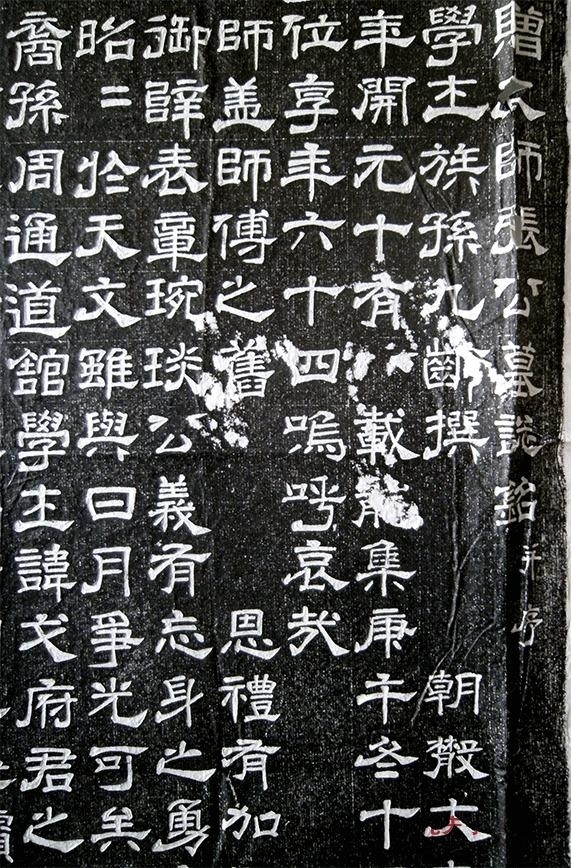 贈太師張公墓誌銘并序
學士族孫九齡撰 朝散大
年開元十有八載龍集庚午冬十
位享年六十四嗚呼哀哉
師盖師傅之舊 恩禮有加
御辝表章琬琰公義有忘身之勇
昭〻於天文雖與日月爭光可矣
裔孫周通道館學士諱弋府君之